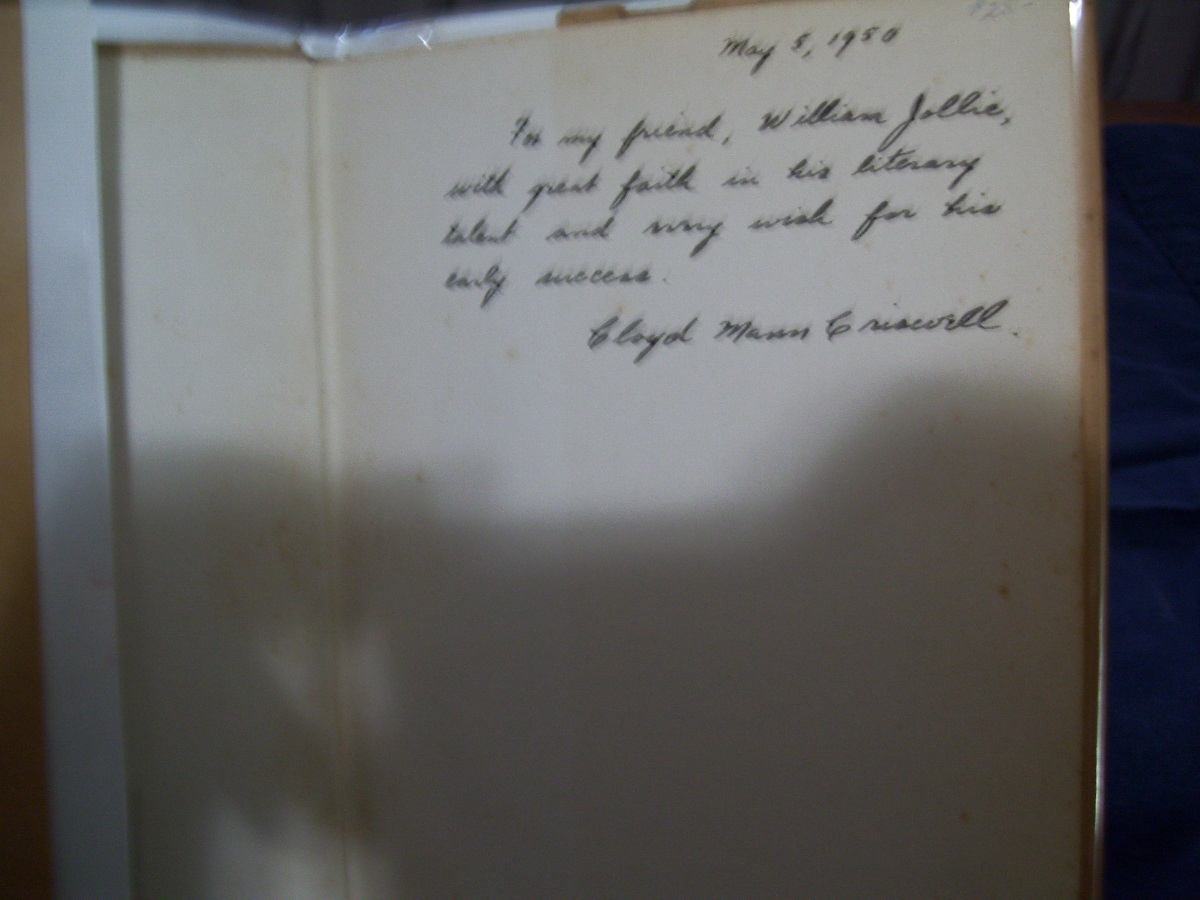 May 5, 1950
For my friend, William Jollie,
with great faith in his literary
talent and every wish for his
early success.
Cloyd Mann Criswell.